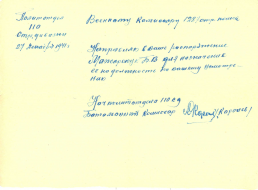 Политотдел
110
Стр дивизии
27 декабря 1941 г.
Военкому Комиссару 1287 стр. полка
Направляю в Ваше распоряжение
для назначения
на должность по вашему усмотре-
нию
Начполитотдела 110 сд
Батальонный Комиссар (Карпов)